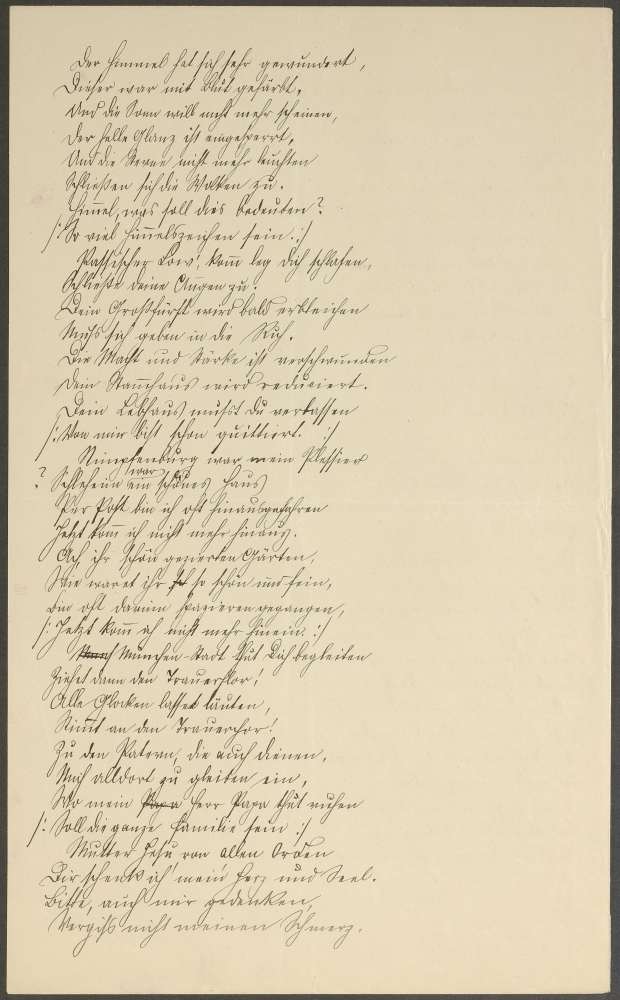 Der Himmel hat sich sehr gewundert,
Dieser war mit Blut gefärbt,
Und die Sonn will nicht mehr scheinen,
Der helle Glanz ist eingesperrt,
Und die Sterne nicht mehr leuchten
Schließen sich die Wolken zu.
Him̅el, was soll dies bedeuten?
/: So viel Him̅elszeichen sein. :/
Löw', kom̅ leg dich schlafen,
Schließe deine Augen zu.
Dein Großfürst wird bald erbleichen
Muß sich geben in die Ruh.
Die Macht und Stärke ist verschwunden
Dein Stam̅haus wird reduciert.
Dein Lebhaus mußt du verlassen
/: Von mir bist schon quittiert. :/
Nimpfenburg war mein Plessier
? war ein schönes Haus
Per Post bin ich oft hinausgefahren
Jetzt kom̅ ich nicht mehr hinaus.
Ach, ihr schön gezierten Gärten,
Wie waret ihr so schön und fein,
Bin oft darinn spazieren gegangen,
/: Jetzt kom̅ ich nicht mehr hinein. :/
München-Stadt thut dich begleiten
Ziehet dann den Trauerflor!
Alle Glocken lasset läuten,
Stim̅t an den Trauerchor!
Zu den Patern, die auch dienen,
Mich alldort zu gleiten ein,
Wo mein Herr Papa thut ruhen
/: Soll die ganze Familie sein :/
Mutter Jesu von allen Orden
Dir schenk ich mein Herz und Seel.
Bitte, auch mir gedenken,
Vergiß nicht meinen Schmerz.